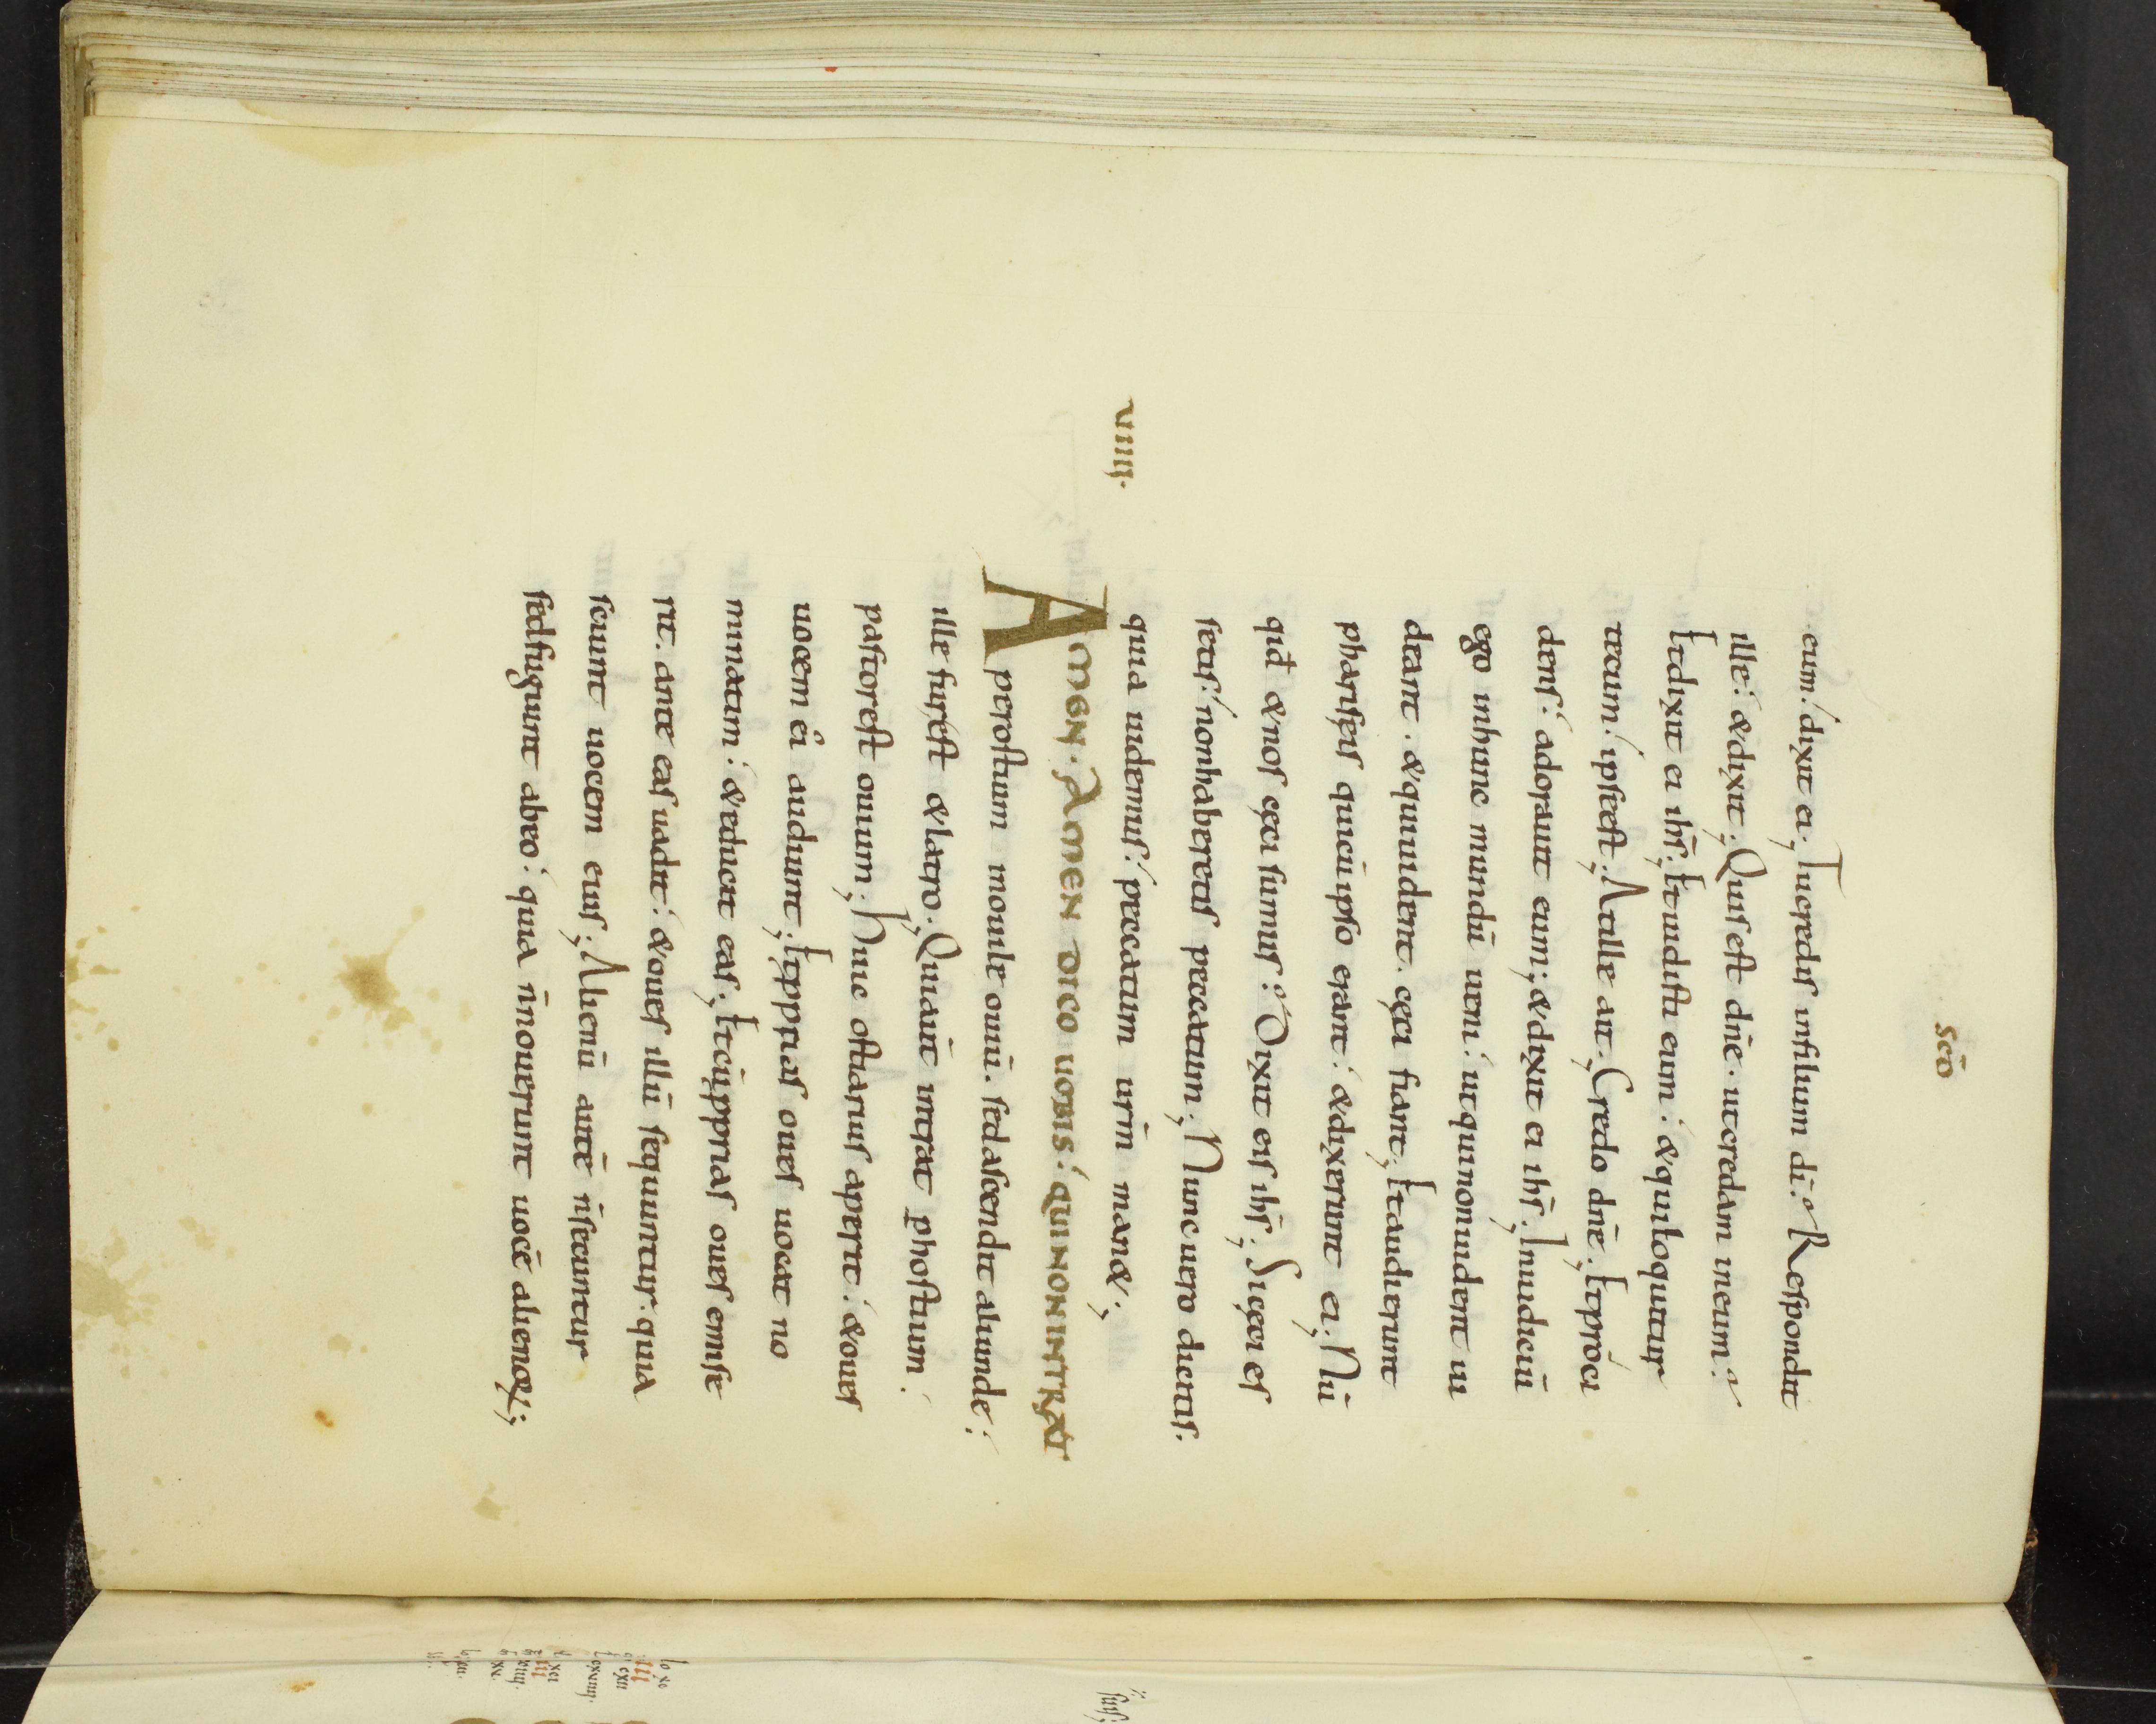 SCO̅
eum. dixit ei; Tucredis infilium di̅? Respondit
ille. &dixit; Quis est dn̅e. utcredam ineum?
Etdixit ei ih̅s; Etuidisti eum. &quiloquitur
tecum. ipseest; Atille ait; Credo dn̅e; Etproci
dens. adorauit eum; &dixit ei ih̅s; Iniudiciu̅
ego inhunc mundu̅ ueni. utquinonuident ui
deant. &quiuident. cęci fiant; Etaudierunt
pharisęis quicu̅ipso erant. &dixerunt ei; Nu̅
qid̅ &nos cęci sumus? Dixit eis ih̅s; Sicęci es
setis. nonhaberetis peccatum; Nuncuero dicitis.
quia uidemus. peccatum ur̅m man&;
VIIII.
AMEN. AMEN DICO UOBIS. QUINONINTRAT
perostium inouile ouiu̅. sedascendit aliunde.
ille furest &latro; Quiaut̅ intrat phostium.
pastorest ouium; Huic ostiarius aperit. &oues
uocem ei audiunt; Etpprias oues uocat no
minatim. &educit eas; Etcu̅pprias oues emise
rit. ante eas uadit. &oues illu̅ sequuntur. quia
sciunt uocem eius; Alienu̅ aute̅ n̅secuntur
sedfugiunt abeo. quia n̅nouerunt uoce̅ alienoꝝ;